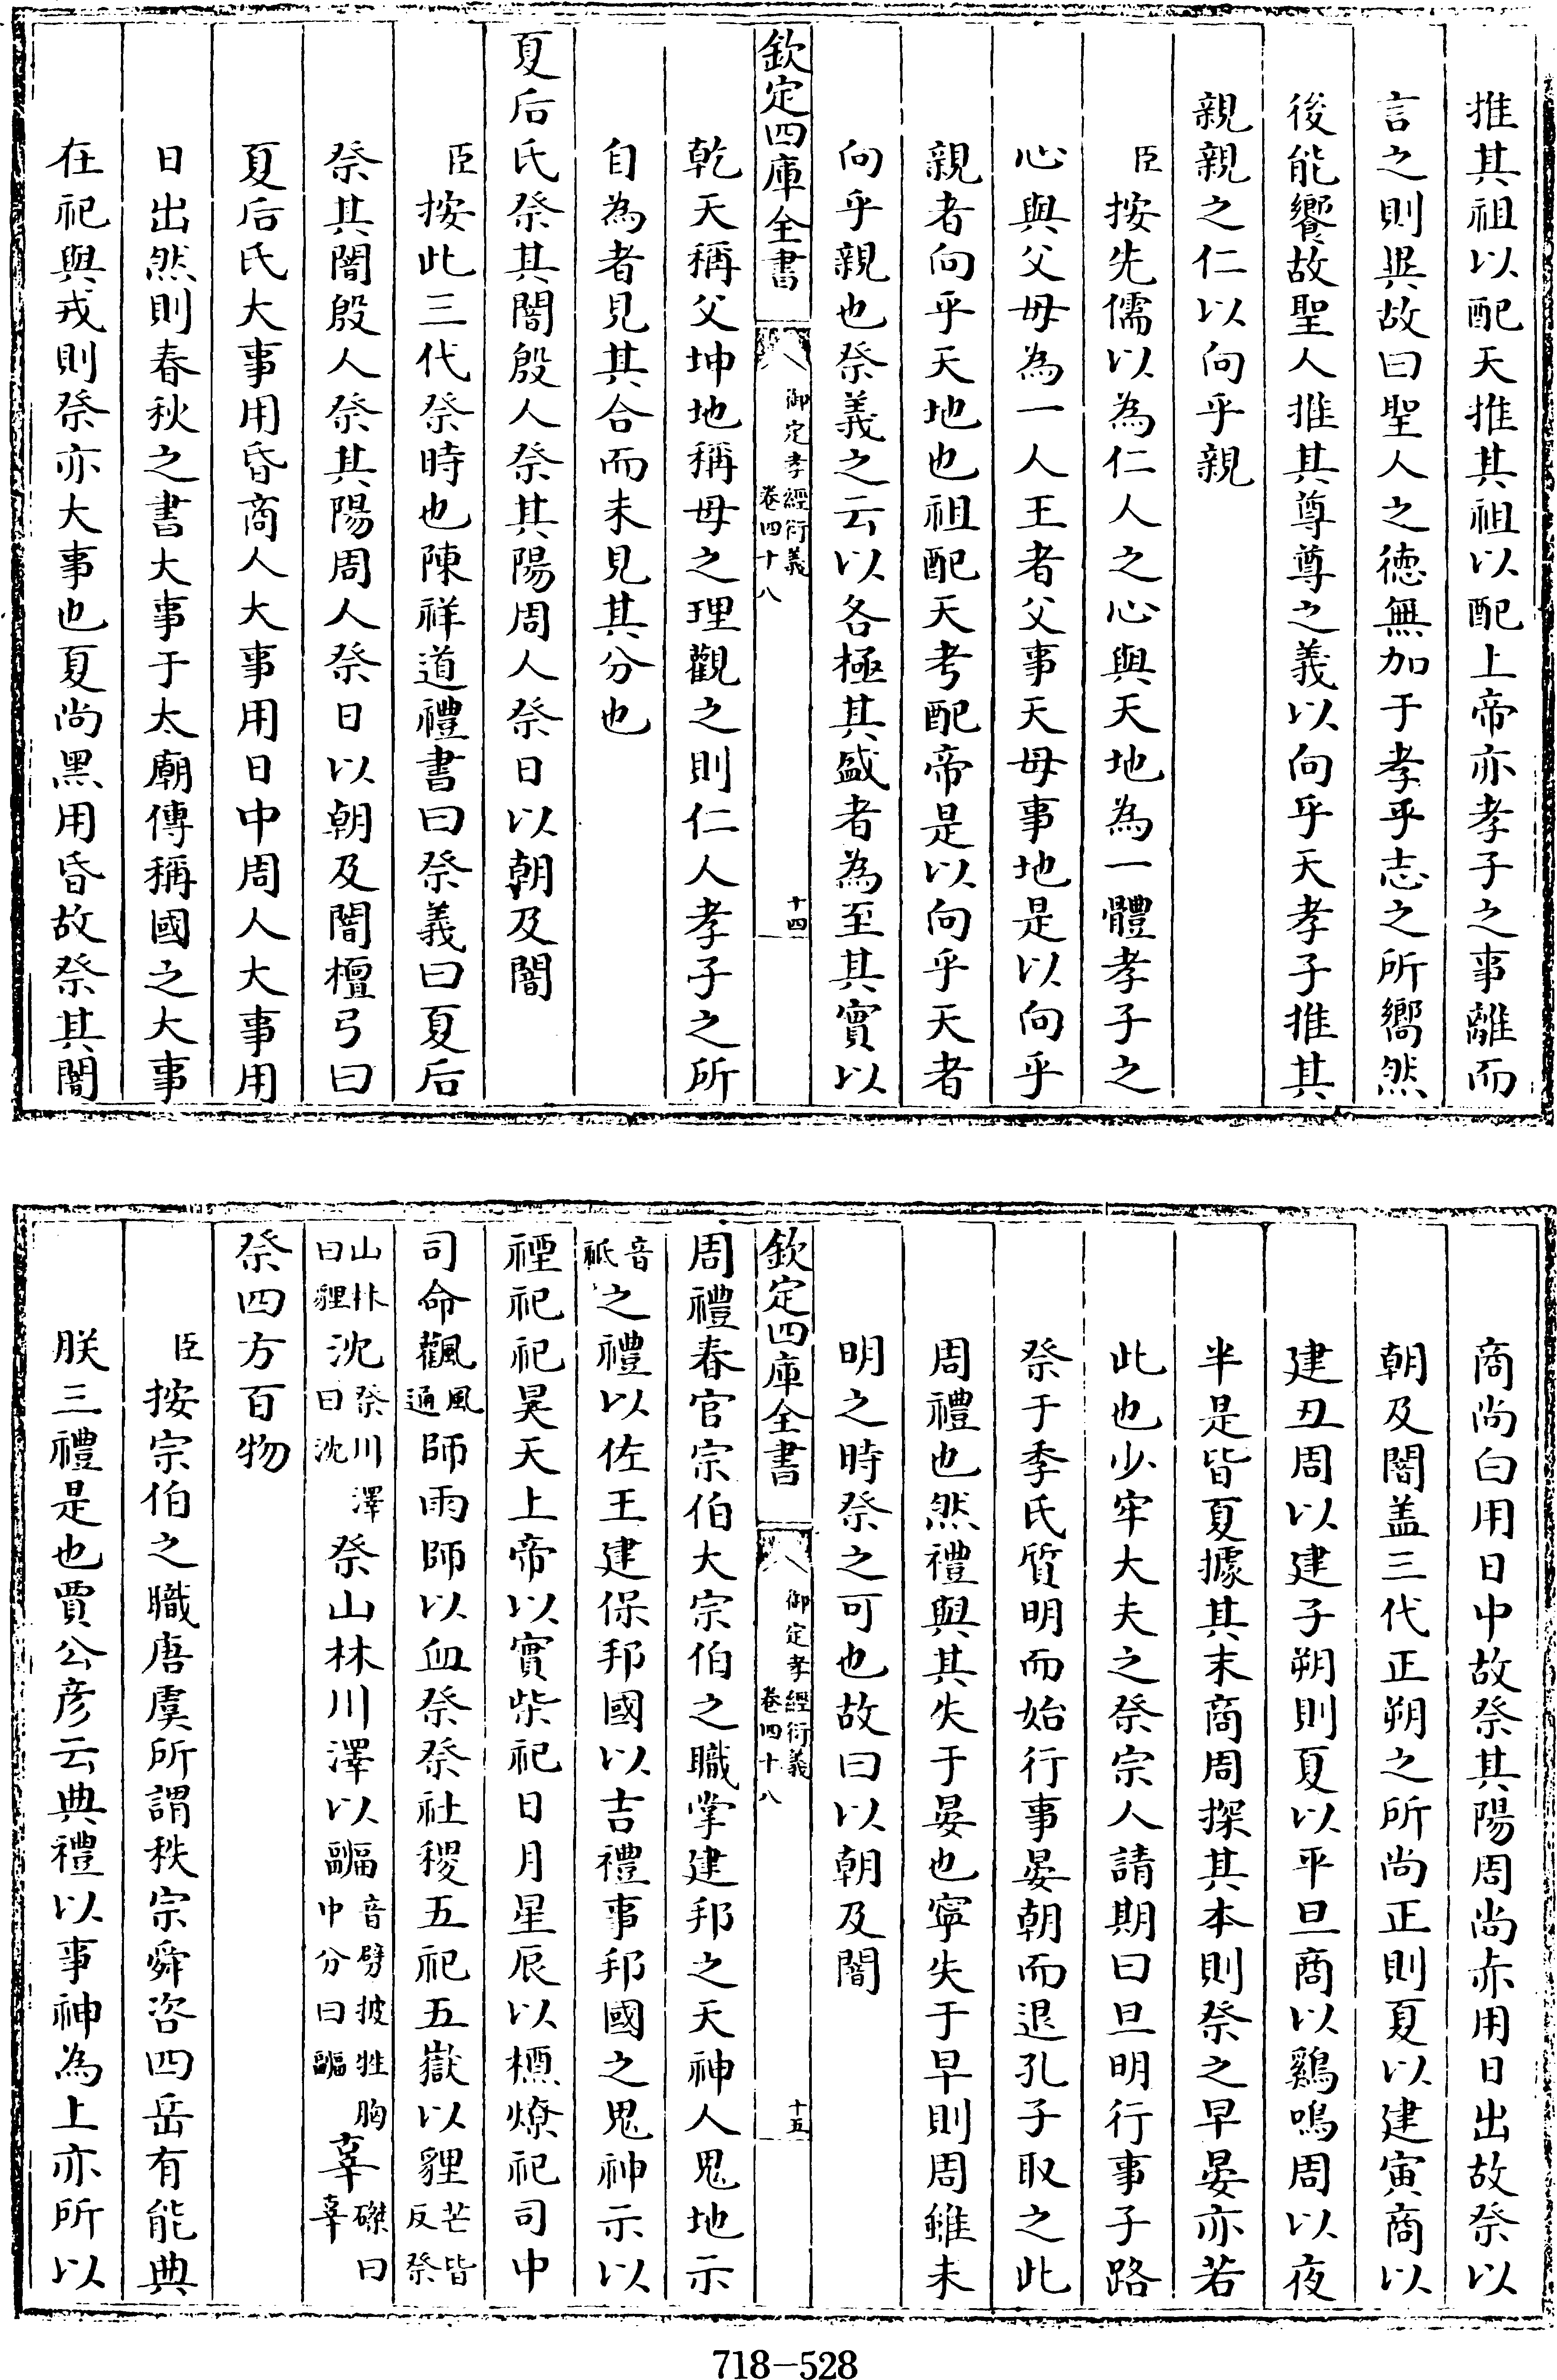 推其祖以配天推其祖以配上帝亦孝子之事離而
言之則異故曰聖人之德無加于孝乎志之所嚮然
後能饗故聖人推其尊尊之義以向乎天孝子推其
親親之仁以向乎親
臣按先儒以為仁人之心與天地為一體孝子之
心與父母為一人王者父事天母事地是以向乎
親者向乎天地也祖配天考配帝是以向乎天者
向乎親也祭義之云以各極其盛者為至其實以
欽定四庫全書
御定孝經衍義
卷四十八
十四
乾天稱父坤地稱母之理觀之則仁人孝子之所
自為者見其合而未見其分也
夏后氏祭其闇殷人祭其陽周人祭日以朝及闇
臣按此三代祭時也陳祥道禮書曰祭義曰夏后
祭其闇殷人祭其陽周人祭日以朝及闇檀弓曰
夏后氏大事用昏商人大事用日中周人大事用
日出然則春秋之書大事于太廟傳稱國之大事
在祀與戎則祭亦大事也夏尚黑用昏故祭其闇
商尚白用日中故祭其陽周尚赤用日出故祭以
朝及闇盖三代正朔之所尚正則夏以建寅商以
建丑周以建子朔則夏以平旦商以鷄鳴周以夜
半是皆夏據其末商周探其本則祭之早晏亦若
此也少牢大夫之祭宗人請期曰旦明行事子路
祭于季氏質明而始行事晏朝而退孔子取之此
周禮也然禮與其失于晏也寧失于早則周雖未
明之時祭之可也故曰以朝及闇
欽定四庫全書
御定孝經衍義
卷四十八
十五
周禮春官宗伯大宗伯之職掌建邦之天神人鬼地示
音祗之禮以佐王建保邦國以吉禮事邦國之鬼神示以
禋祀祀昊天上帝以實柴祀日月星辰以槱燎祀司中
司命飌風通師雨師以血祭祭社稷五祀五嶽以貍芒皆反祭
山林曰貍沈祭川澤曰沈祭山林川澤以疈音劈披牲胸中分曰疈辜磔曰辜
祭四方百物
臣按宗伯之職唐虞所謂秩宗舜咨四岳有能典
朕三禮是也賈公彦云典禮以事神為上亦所以
718-528